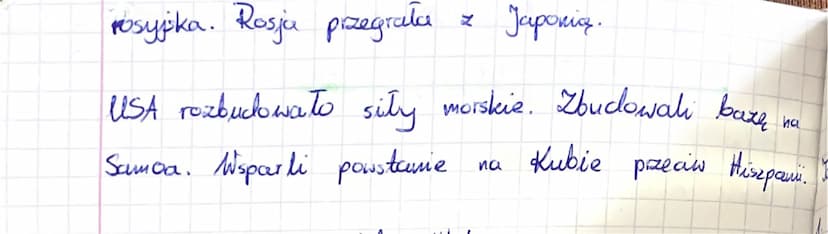 rosyjska. Rosja przegrała z Japonią.
USA rozbudowało siły morskie. Zbudowali bazę na
Samoa. Wsparli powstanie na Kubie przeciw Hiszpanii.